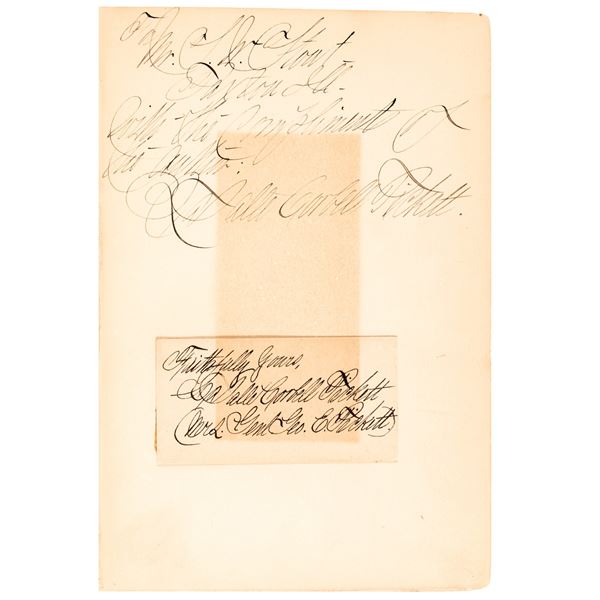 To
Mr. C. N. Stout -
Paxton Ill -
With the Compliments of
the Author:
La Salle Corbell Pickett.
Faithfully Yours,
La Salle Corbell Pickett
(Mrs. Genl Geo. E. Pickett)